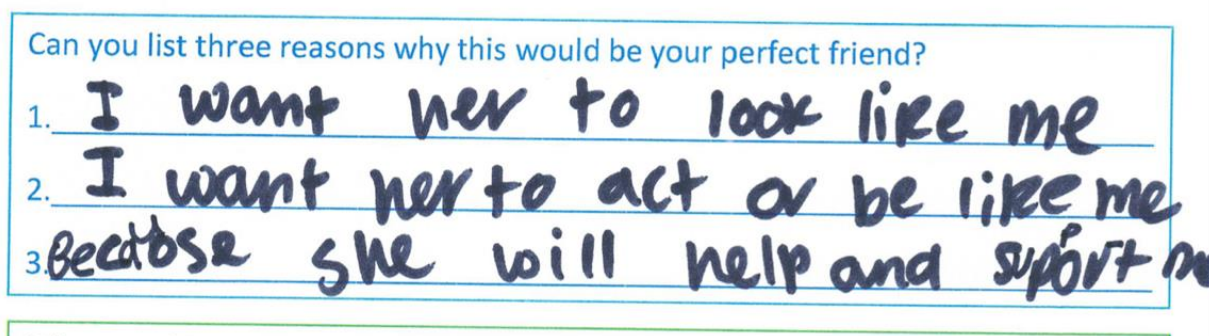 Can you list three reasons why this would be your perfect friend?
1. I want her to look like me
2. I want her to act or be like me
3. Becabse she will help and support